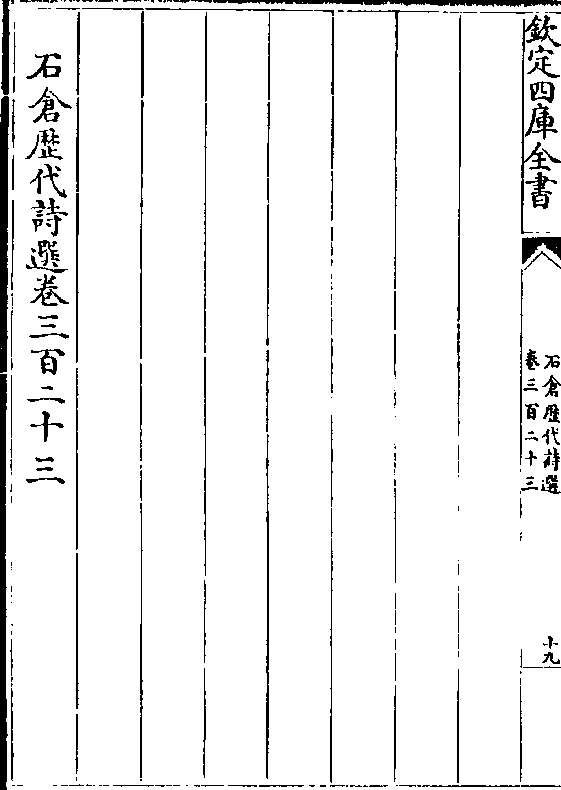 欽定四庫全書
石倉歴代詩選
卷三百二十三
十九
石倉歴代詩選卷三百二十三